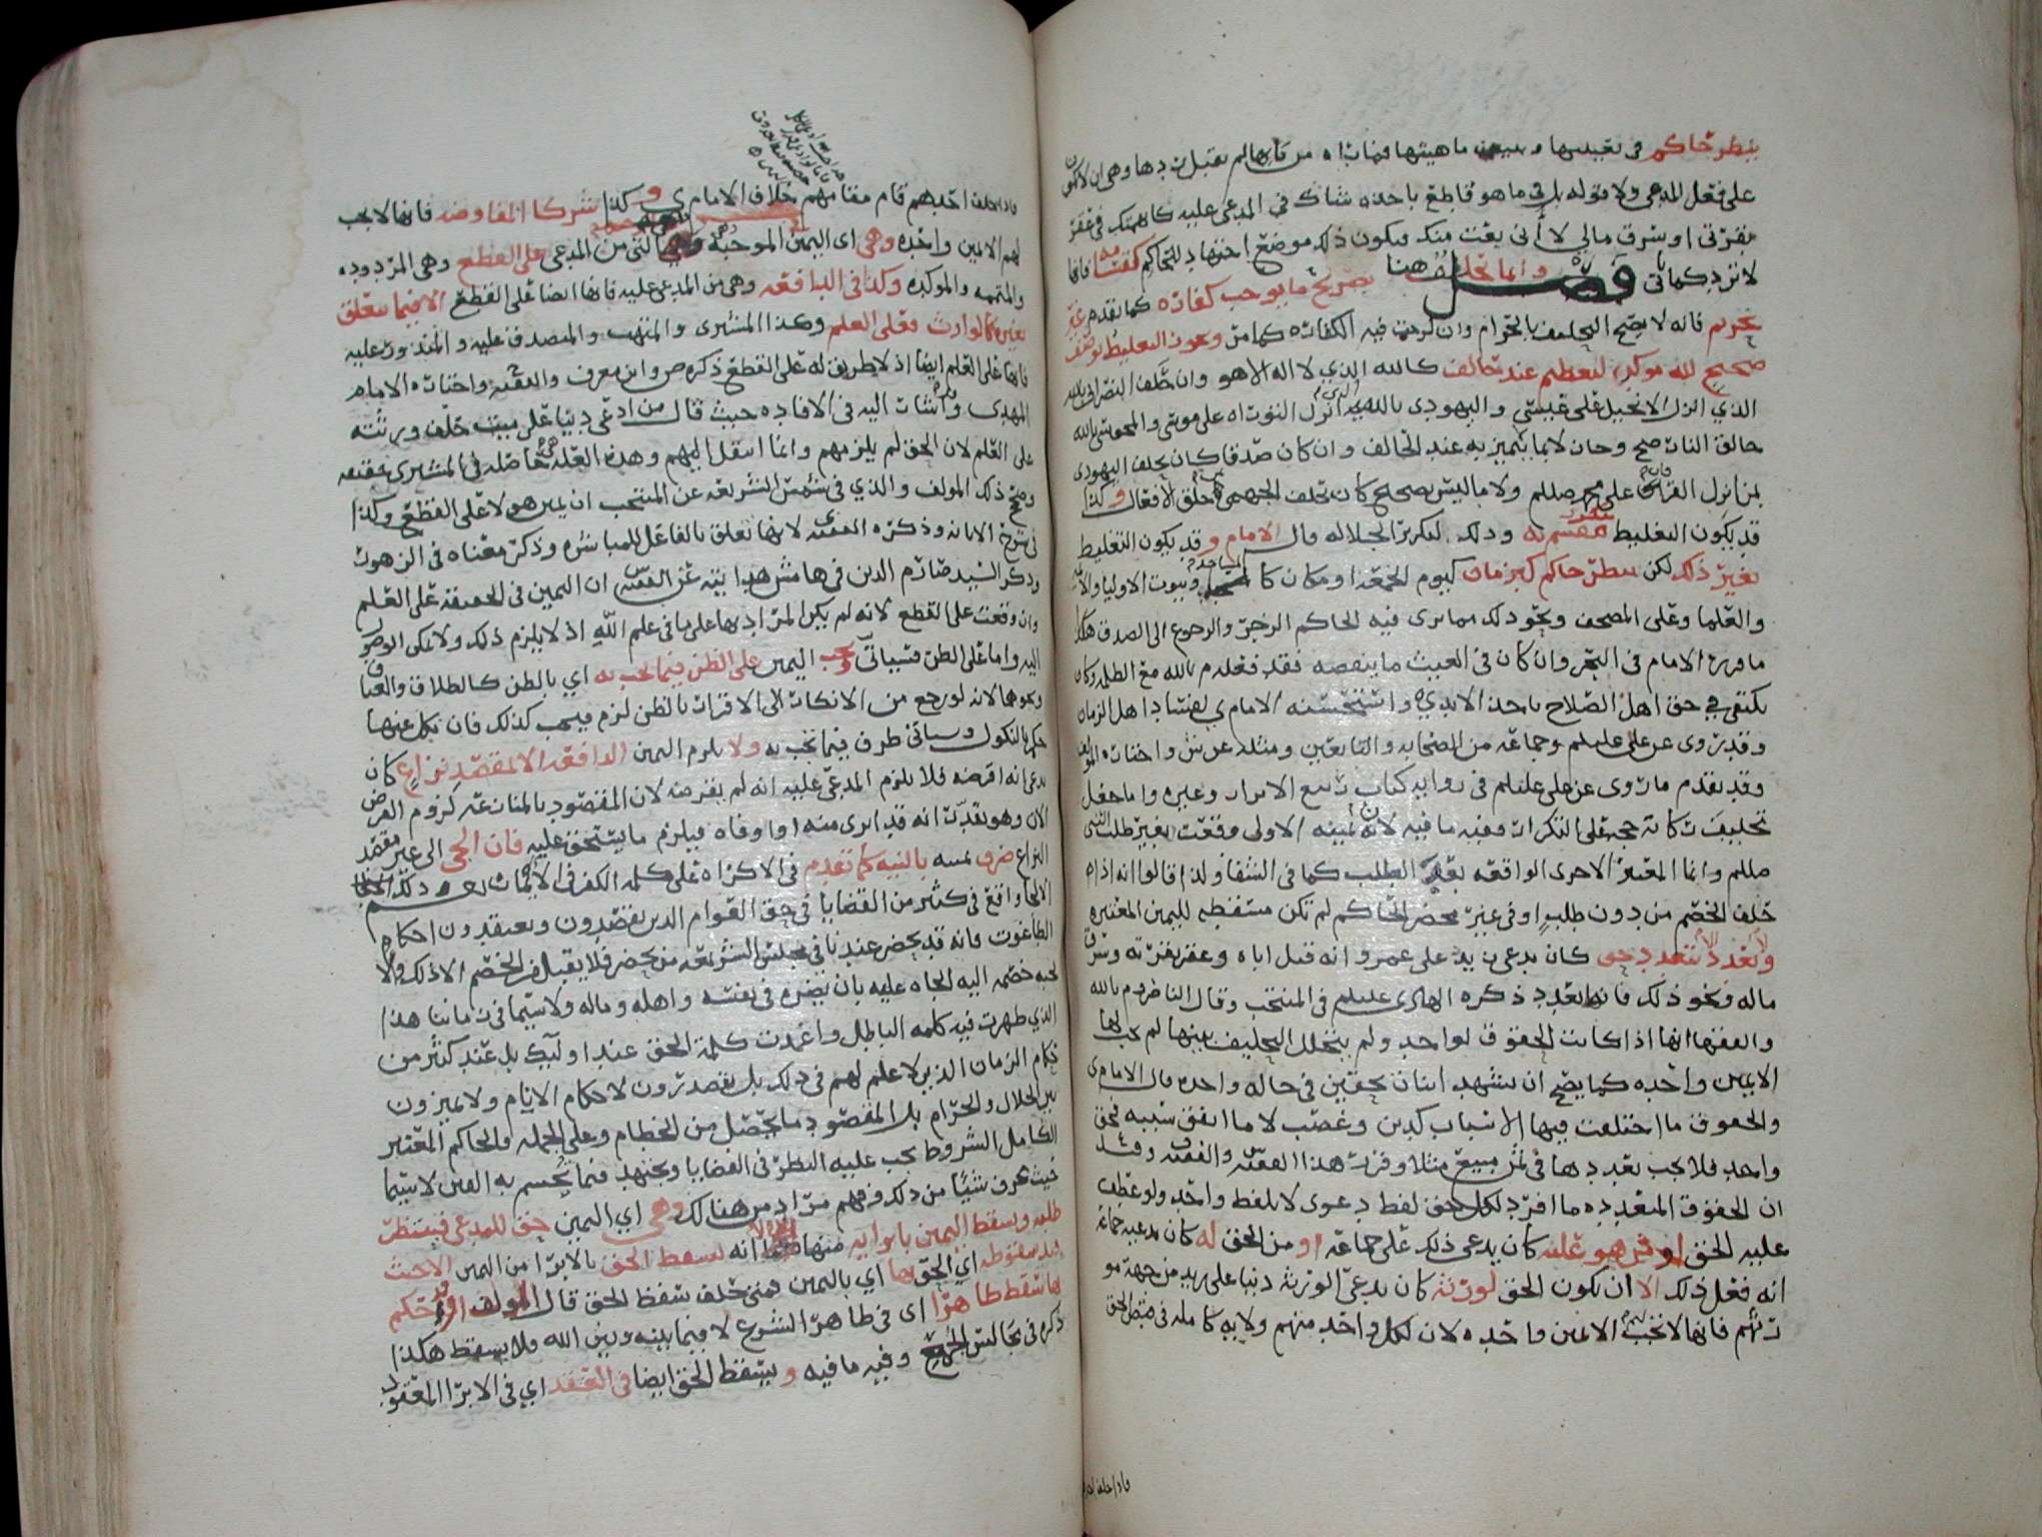 ينظر حاكم في تعيينها وتبيين ماهيتها فما رآه من قاربها لم تقبل ردها وهي ان لا تكون
على فعل المدعي ولا قوله بل في ما هو قاطع باحده شاك في المدعى عليه كاتهمتك في عقر
بقرتي او سرق مالي لا أني بعت منك فيكون ذلك موضع اجتهاد للحاكم كفتيا فانها
لا ترد كما تي فصل وانما تحليف هنا بصريح ما يوجب كفاره كما تقدم غير
تحريم فانه لا يصح التحليف بالحرام وان لزمت فيه الكفاره كما مر ويجوز التغليظ بوصف
صحيح لله موكد لتعظيم عند تحالف كالله الذي لا اله الا هو وان حلف النصراني بالله
الذي انزل الانجيل على عيسى واليهودي بالله الذي انزل التوراه على موسى والمجوسي بالله
خالق النار صح وجاز لا بما يتميز به عند الحالف وان كان صدقا كأن يحلف اليهودي
بمن انزل القرآن على محمد صللم ولا ما ليس بصحيح كأن تحلف الجهمي خلق الافعال وكذا
قد يكون التغليظ بتكرار مقسم به وذلك لتكرير الجلاله قال الامام و قد يكون التغليظ
بغير ذلك لكن بنظر حاكم كبزمان كيوم الجمعه او مكان كالمساجد وبيوت الاوليا والائمه
والعلما وعلى المصحف ونحو ذلك مما يرى فيه الحاكم الزجر والرجوع الى الصدق هكذا
ما قرره الامام في البحر وان كان في الغيث ما ينقضه فقد فعله م بالله مع الظلمه وكان
يكتفي في حق اهل الصلاح باحد الايدي واستحسنه الامام ي لفساد اهل الزمان
وقد روي عن علي عليلم وجماعه من الصحابه والتابعين ومثله عن ش واختاره المؤلف
وقد تقدم ما روي عن علي عليلم في روايه كتاب ربيع الابرار وغيره واما جعل
تحليف ركانه حجه على التكرار ففيه ما فيه لان يمينه الاولى وقعت بغير طلب النبي
صللم وانما المعتبر الاخرى الواقعه بعد الطلب كما في الشفا ولذا قالوا انه اذا
حلف الخصم من دون طلب او في غير محضر الحاكم لم تكن مسقطه لليمين المعتبره
وتعدد لا لتعدد حق كان يدعي زيد على عمرو انه قتل اباه وعقر بقرته وسرق
ماله ونحو ذلك فانها تعدد ذكره الهادي عليلم في المنتخب وقال الناصر و م بالله
والفقها انها اذا كانت الحقوق لواحد ولم يتخلل التحليف بينها لم يجب لها
الا يمين واحده كما يصح ان يشهد اثنان بحقين في حاله واحده قال الامام ي
والحقوق ما اختلفت فيها الاسباب كدين وغصب لا ما اتفق سببه فحق
واحد فلا يجب تعددها في ثمن مبيع مثلا وقرر هذا الفقيه والفقيه وقيل
ان الحقوق المتعدده ما افرد لكل حق لفظ دعوى لا بلفظ واحد ولو عطف
عليه الحق او من هو عليه كان يدعي ذلك على جماعه او من الحق له كان يدعيه جماعه
انه فعل ذلك الا ان يكون الحق لورثه كان يدعي الورثه دينا على زيد من جهة مو
رثهم فانها لا تجب لهم الا يمين واحده لان لكل واحد منهم ولايه كامله في قبض الحق
فاذا حلف احد
فاذا حلف احدهم قام مقامهم خلاف الامام ي و كذا شركا المفاوضه فانها لا تجب
لهم الا يمين واحده وهي اى اليمين الموجبه وهي التي من المدعي على القطع وهي المردوده
والمتممه والموكده وكذا في الدافعه وهي من المدعى عليه فانها ايضا على القطع الا فيما يتعلق
بغيره كالوارث فعلى العلم وكذا المشتري والمتهب والمتصدق عليه والمنذور عليه
فانها على العلم ايضا اذ لا طريق له على القطع ذكره ص وابن معرف والفقيه واختاره الامام
المهدي واشار اليه في الافاده حيث قال من ادعى دينا على ميت حلف ورثته
على العلم لان الحق لم يلزمهم وانما انتقل اليهم وهذه العله حاصله في المشتري
وصحح ذلك المؤلف والذي في شمس الشريعه عن المنتخب ان يمين هولا على القطع وكذا
في شرح الابانه وذكره الفقيه لانها تعلق بالفاعل المباشره وذكر معناه في الزهور
وذكر السيد صارم الدين في هامش هدايته عن الفقيه ان اليمين في الحقيقه على العلم
وان وقعت على القطع لانه لم يكن المراد بها على ما في علم الله اذ لا يلزم ذلك ولا يمكن الوصول
اليه واما على الظن فسياتي وتجب اليمين على الظن فيما يجب به اي بالظن كالطلاق والعتاق
ونحوهما لانه لو رجع من الانكار الى الاقرار بالظن لزم فيجب كذلك فان نكل عنها
حكم بالنكول وسياتي طرف فيما تجب به ولا يلزم اليمين الدافعه الا لمقصد نزاع كان
يدعي انه اقرضه فلا يلزم المدعى عليه انه لم يقرضه لان المقصود بالمنازعه لزوم القرض
الان وهو بعد رانه قد ابرى منه او اوفاه فيلزم ما يستحق عليه فان الجي الى غير مقصد
النزاع صرف يمينه بالنيه كما تقدم في الاكراه على كلمة الكفر في الايمان ذلك
الالجا واقع في كثير من القضايا في حق العوام الذين يقصدون ويعتقدون احكام
الطاغوت فانه قد يحضر عندنا في مجلس الشريعه من يحضر فلا يقبل من الخصم الا ذلك والا
خصمه اليه الجاه عليه بان يضره في نفسه واهله وماله ولا سيما في زماننا هذا
الذي ظهرت فيه كلمة الباطل واغمدت كلمة الحق عند اوليك بل عند كثير من
حكام الزمان الذين لا علم لهم في ذلك بل يتصدرون لاحكام الانام ولا يميزون
بين الحلال والحرام بل المقصود ما يحصل من الحطام وعلى الجمله فالحاكم المعتبر
الكامل الشروط يجب عليه النظر في القضايا ويجتهد فيما يحسم به الفتن لا سيما
حيث عرف شيئا من ذلك وفهم مراد من هنالك وهي اي اليمين حق للمدعي فينتظر
طلبه ويسقط اليمين بابرايه منها انه يسقط الحق بالابرا من اليمين الا حيث
يقيد سقوطه اي الحق بها اي باليمين فمتى حلف سقط الحق قال المولف وقد حكم
بها سقط ظاهرا اى في ظاهر الشرع لا فيما بينه وبين الله فلا يسقط هكذا
ذكره في مجالس وفيه ما فيه و يسقط الحق ايضا في العقد اي في الابرا المعقود